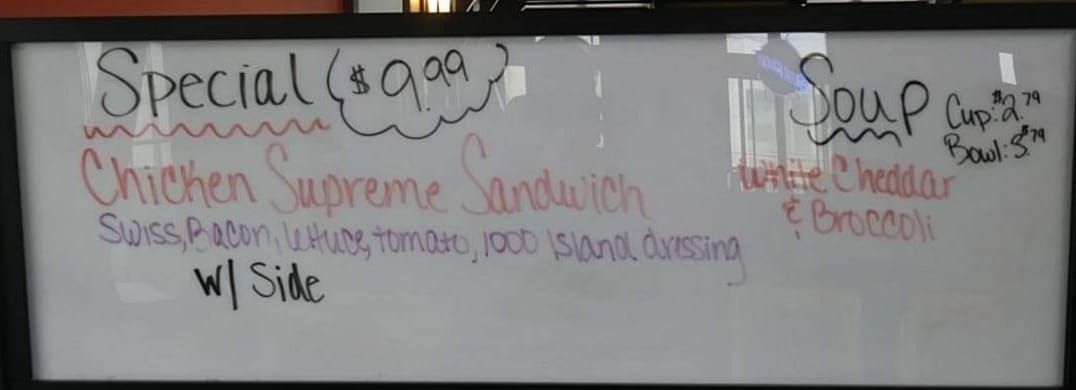 Special ($9.99)
Chicken Supreme Sandwich
Swiss, Bacon, lettuce, tomato, 1000 Island dressing
w/ Side
Soup
Cup: $2.79
Bowl: $3.79
White Cheddar
& Broccoli